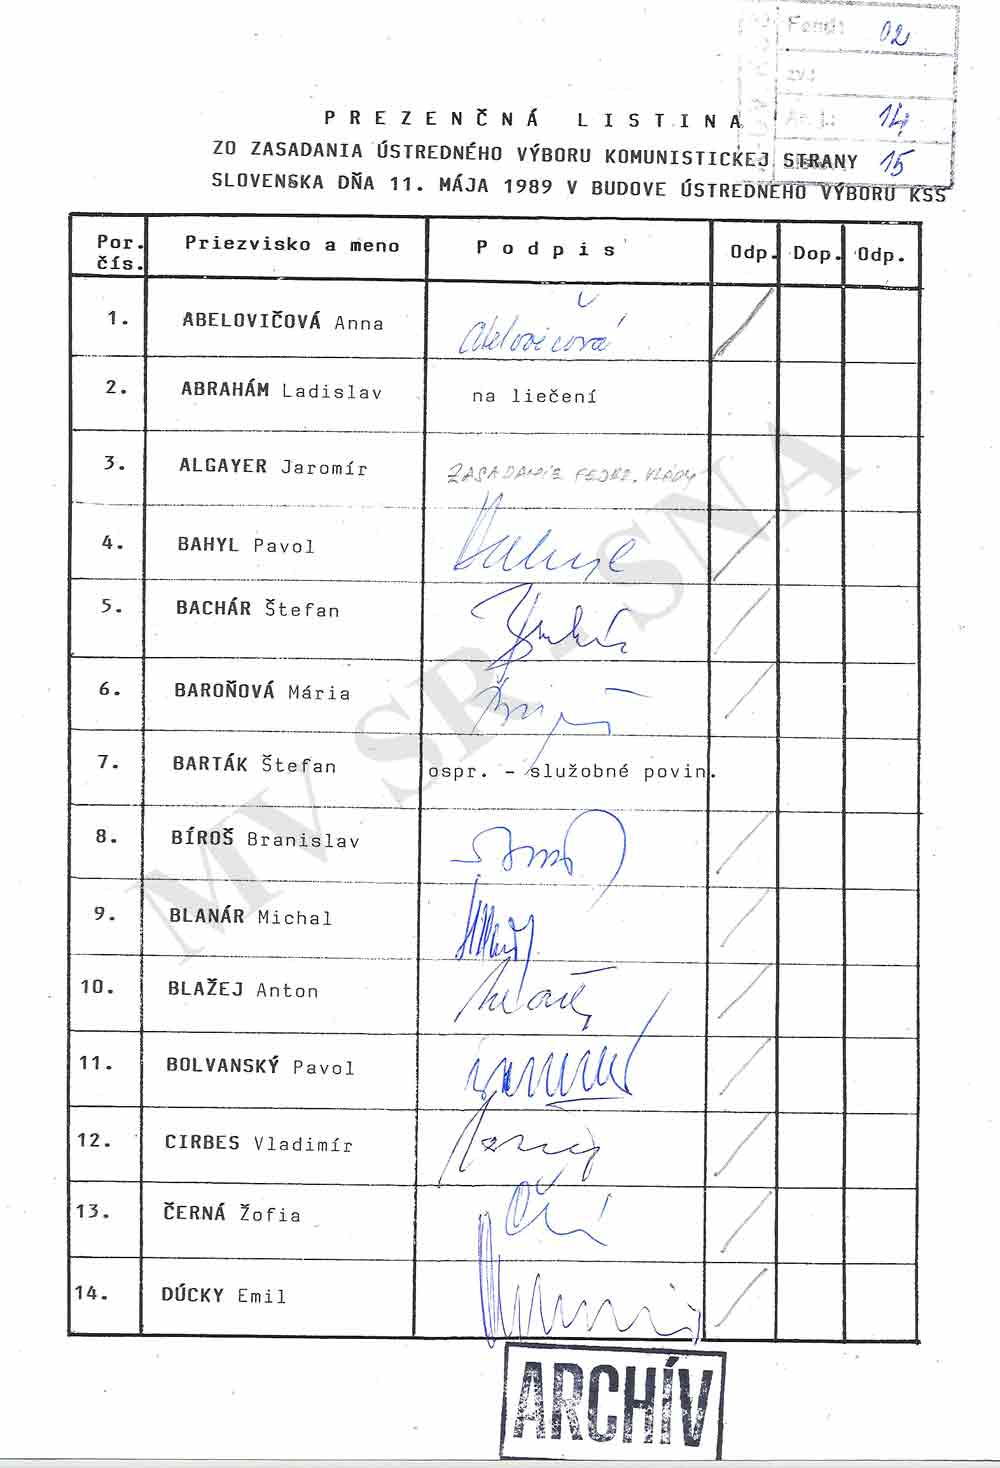 Fond: 02
zv.:
Ar. j.: 14
15
PREZENČNÁ LISTINA
ZO ZASADANIA ÚSTREDNÉHO VÝBORU KOMUNISTICKEJ STRANY
SLOVENSKA DŇA 11. MÁJA 1989 V BUDOVE ÚSTREDNÉHO VÝBORU KSS
Por. čís. Priezvisko a meno Podpis Odp. Dop. Odp.
1. ABELOVIČOVÁ Anna Abelovičová
2. ABRAHÁM Ladislav na liečení
3. ALGAYER Jaromír ZASADANIE FEDER. VLÁDY
4. BAHYL Pavol
5. BACHÁR Štefan
6. BAROŇOVÁ Mária
7. BARTÁK Štefan ospr. - služobné povin.
8. BÍROŠ Branislav
9. BLANÁR Michal
10. BLAŽEJ Anton
11. BOLVANSKÝ Pavol
12. CIRBES Vladimír
13. ČERNÁ Žofia
14. DÚCKY Emil
MV SR - SNA
ARCHÍV